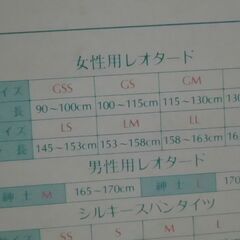 女性用レオタード
イズ GSS GS GM
長 90~100cm 100~115cm 115~130cm 130
イズ LS LM LL
長 145~153cm 153~158cm 158~163cm 16
男性用レオタード
紳士 M 165~170cm 紳士 L 170
シルキースパンタイツ
イズ SS S M L